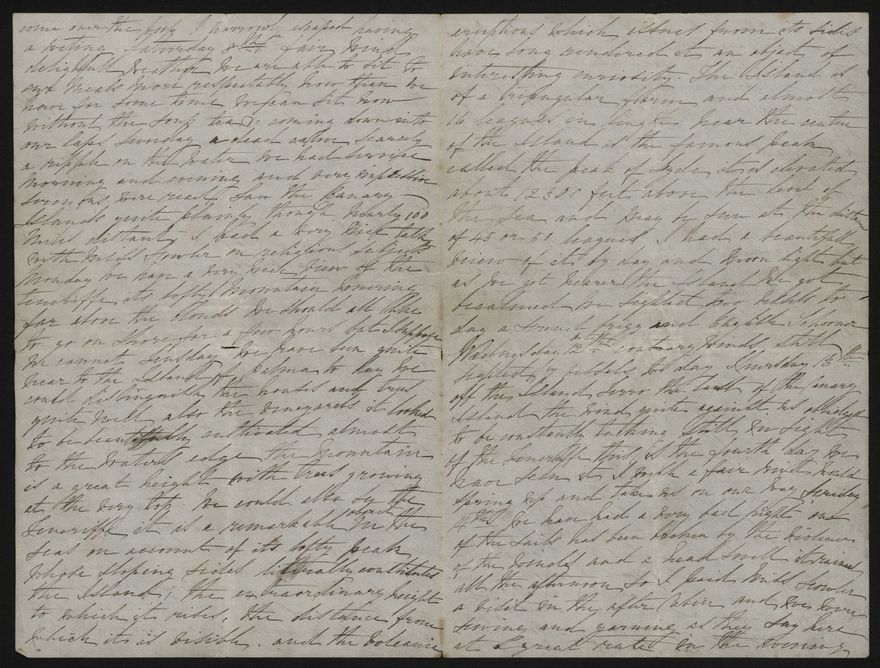 come over the poop I narrowly escaped having
a wetting Saturday 8th fair wind
delightful weather we are able to sit to
our meals more respectably now than we
have for some time we can sit now
without the soup tea &c coming down into
our laps Sunday a dead calm scarcely
a ripple on the water we had service
morning and evening and very impressive
sermons were read Saw the Canary
Islands quite plainly though nearly 100
miles distant I had a very nice talk
with Miss Fowler on religious subjects
Monday we have a very nice view of the
teneriffe its lofty mountain towering
far above the clouds We should all like
to go on shore for a few hours but I suppose
we cannot Tuesday we have been quite
near to the Island of palma to day we
could distinguish the houses and trees
quite well also the vineyards it looked
to be beautifully cultivated almost
to the waters edge the mountain
is a great height with trees growing
at the very top. We could also see the
Teneriffe it is a remarkable object in the
seas on account of its lofty peak
whose sloping sides litterally constitutes
the Island; the extraordinary height
to which it rises, the distance from
which it is visible. and the volcanic
eruptions which issues from its sides
have long rendered it an object of
interesting curiosity. The Island is
of a triangular form and almost
16 leagues in length, near the centre
of the Island is the famous peak
called the peak of Tyde it is elevated
about 12300 feet above the level of
the sea and may be seen at the distance
of 45 or 50 leagues I had a beautiful
view of it by day and moon light but
as we got nearer the Island we got
becalmed we sighted two vessels to
day a french brigg and English Schooner
Wednesday 12th contrary winds still
sighted vessels to day Thursday 13th
off the Island Ferro the last of the canary
Island the wind quite against us obliged
to be constantly tacking still in sight
of the Teneriffe this is the fourth day we
have seen it I wish a fair wind would
spring up and take us on our way Friday
14th We have had a very bad night one
of the sails has been broken by the violence
of the wind and a head swell it rained
all the afternoon so I paid Miss Fowler
a visit in the after cabin and we were
sewing and yarning as they say here
at a great rate in the evening